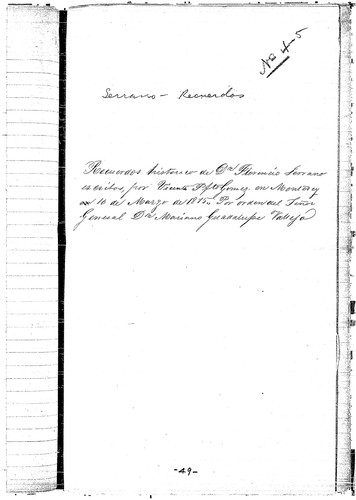 No 4-5
Serrano - Recuerdos
Recuerdos histórico de Dn Florencio Serrano
escritos, por Vicente P. Gomez en Monterey
en 10 de Marzo de 1875. Por orden del Señor
General Dn Mariano Guadalupe Vallejo
-49-